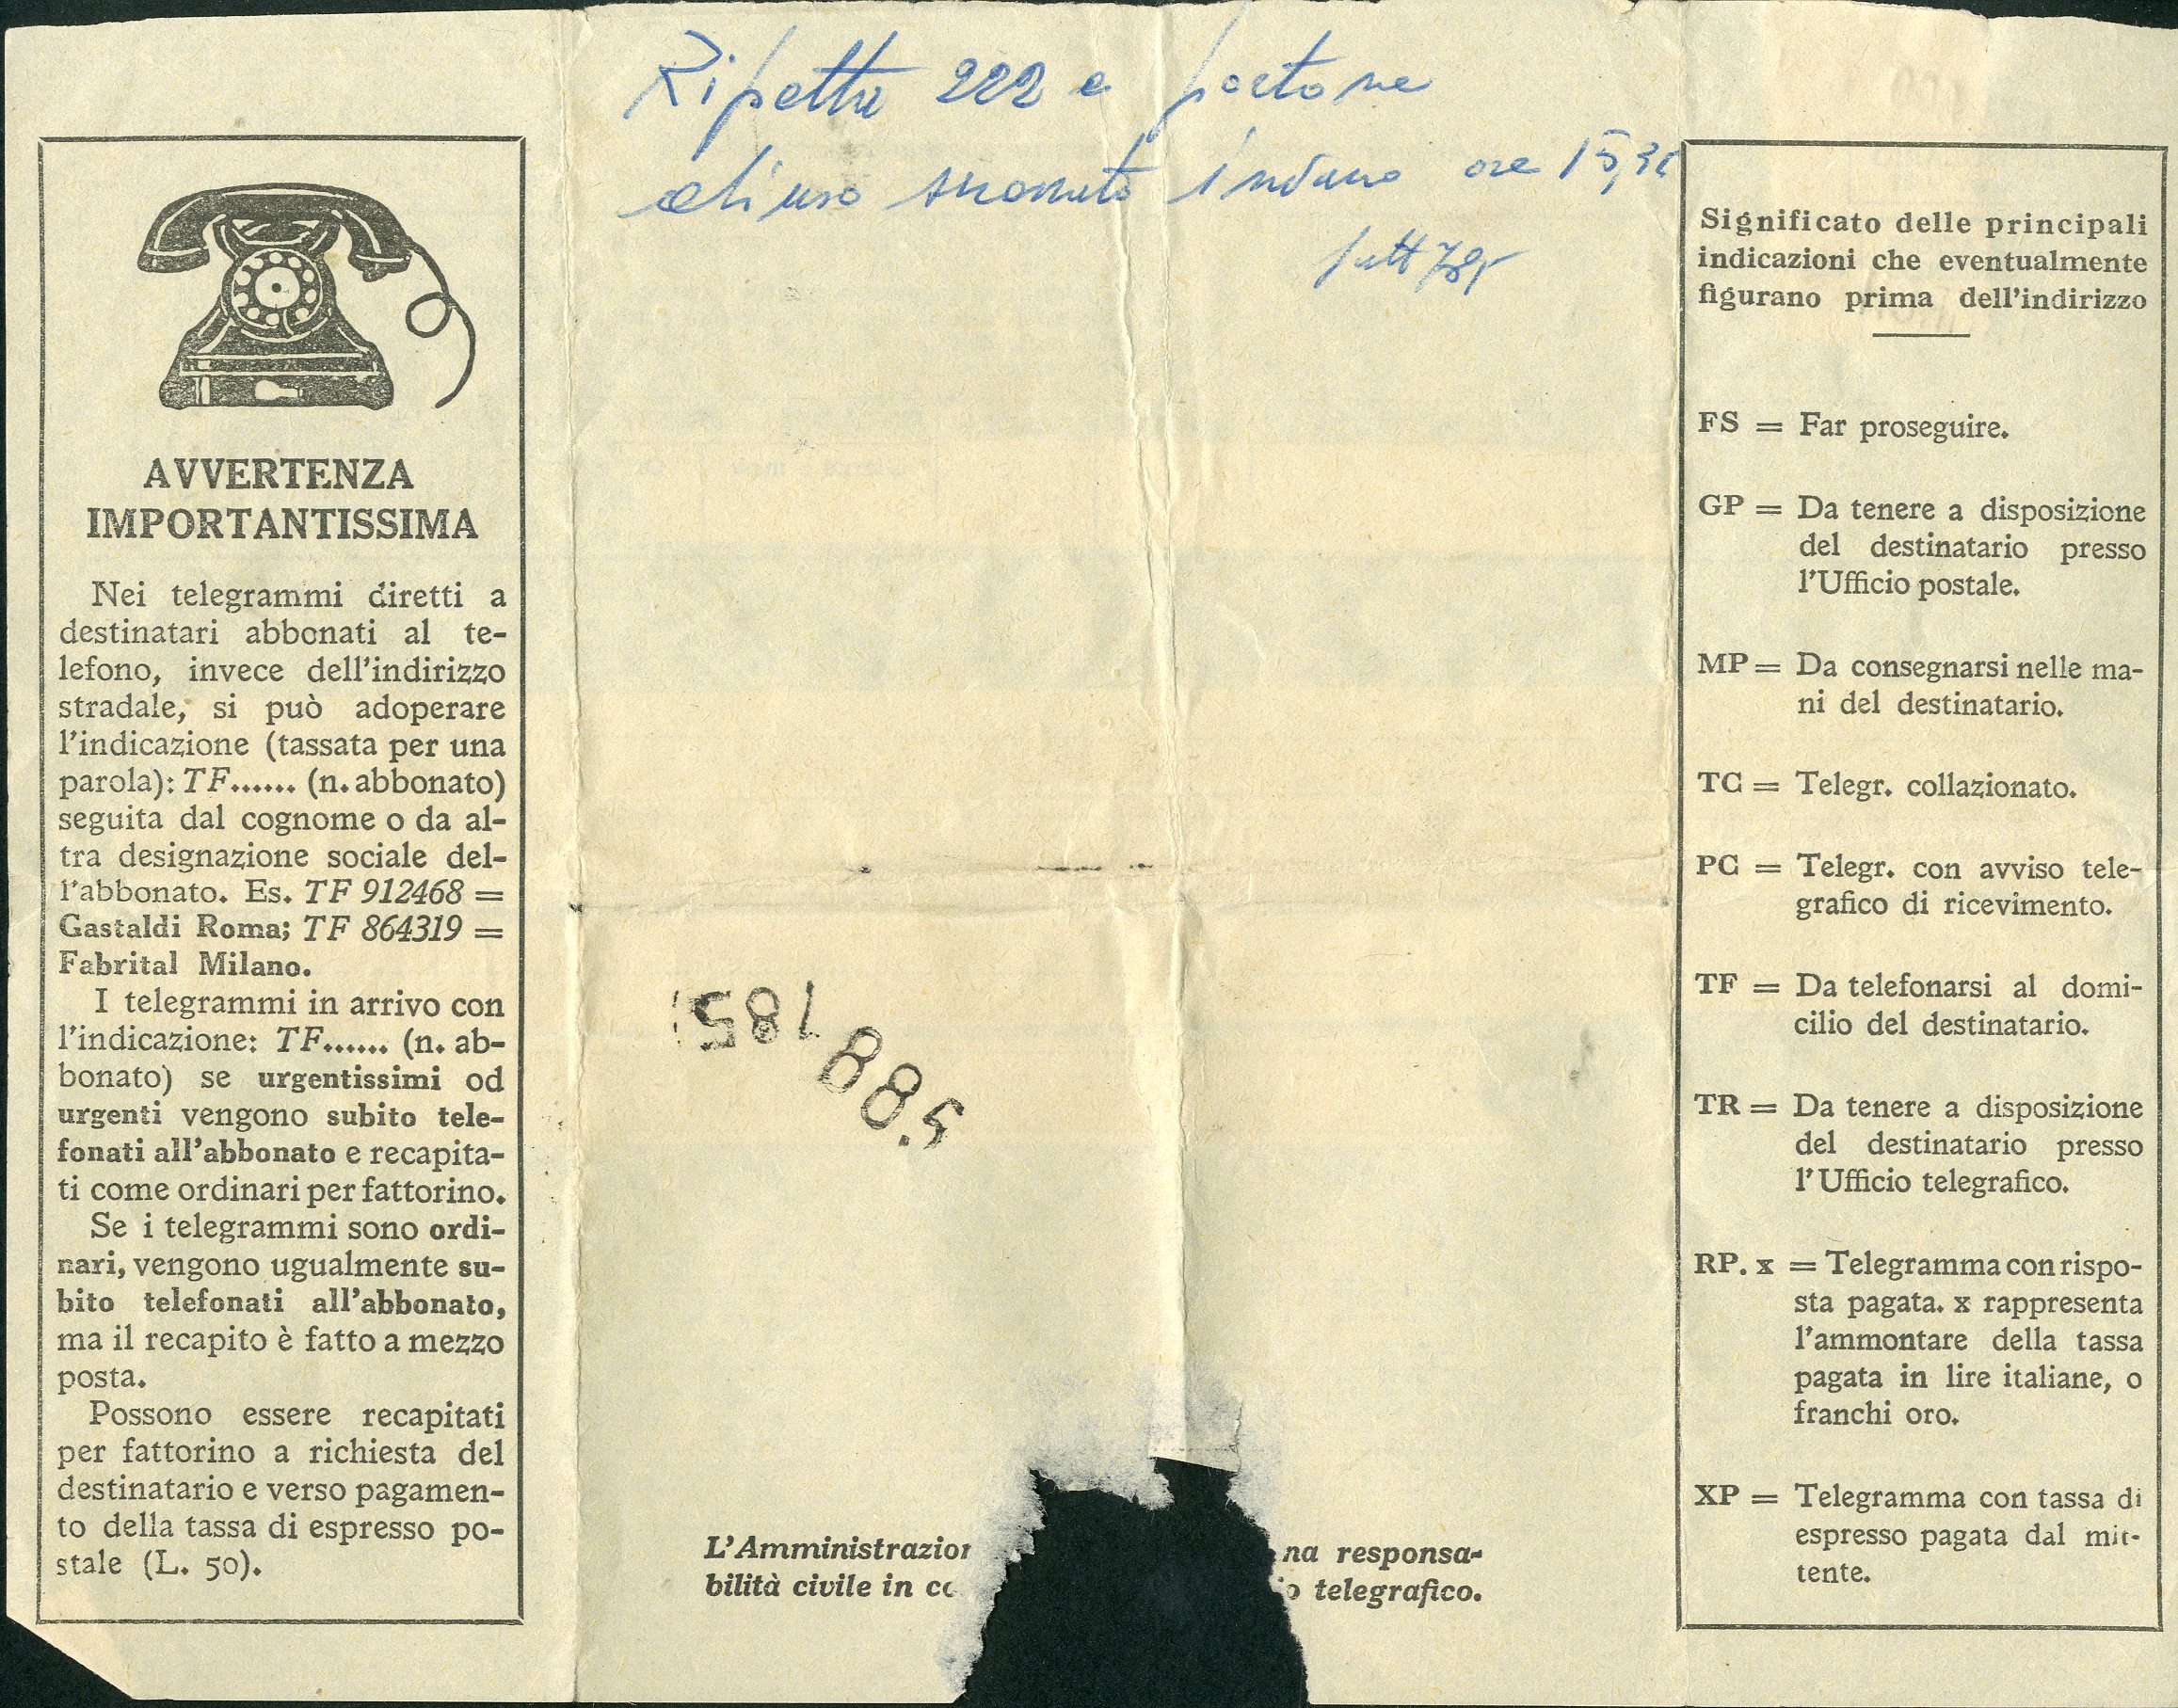 Ripetta 222 e portone
chiuso suonato invano ore 15,35
fatt 785
AVVERTENZA
IMPORTANTISSIMA
Nei telegrammi diretti a
destinatari abbonati al te-
lefono, invece dell'indirizzo
stradale, si può adoperare
l'indicazione (tassata per una
parola): TF...... (n. abbonato)
seguita dal cognome o da al-
tra designazione sociale del-
l'abbonato. Es. TF 912468 =
Gastaldi Roma; TF 864319 =
Fabrital Milano.
I telegrammi in arrivo con
l'indicazione: TF...... (n. ab-
bonato) se urgentissimi od
urgenti vengono subito tele-
fonati all'abbonato e recapita-
ti come ordinari per fattorino.
Se i telegrammi sono ordi-
nari, vengono ugualmente su-
bito telefonati all'abbonato,
ma il recapito è fatto a mezzo
posta.
Possono essere recapitati
per fattorino a richiesta del
destinatario e verso pagamen-
to della tassa di espresso po-
stale (L. 50).
L'Amministrazion na responsa-
bilità civile in co o telegrafico.
Significato delle principali
indicazioni che eventualmente
figurano prima dell'indirizzo
FS = Far proseguire.
GP = Da tenere a disposizione
del destinatario presso
l'Ufficio postale.
MP = Da consegnarsi nelle ma-
ni del destinatario.
TC = Telegr. collazionato.
PC = Telegr. con avviso tele-
grafico di ricevimento.
TF = Da telefonarsi al domi-
cilio del destinatario.
TR = Da tenere a disposizione
del destinatario presso
l'Ufficio telegrafico.
RP. x = Telegramma con rispo-
sta pagata. x rappresenta
l'ammontare della tassa
pagata in lire italiane, o
franchi oro.
XP = Telegramma con tassa di
espresso pagata dal mit-
tente.